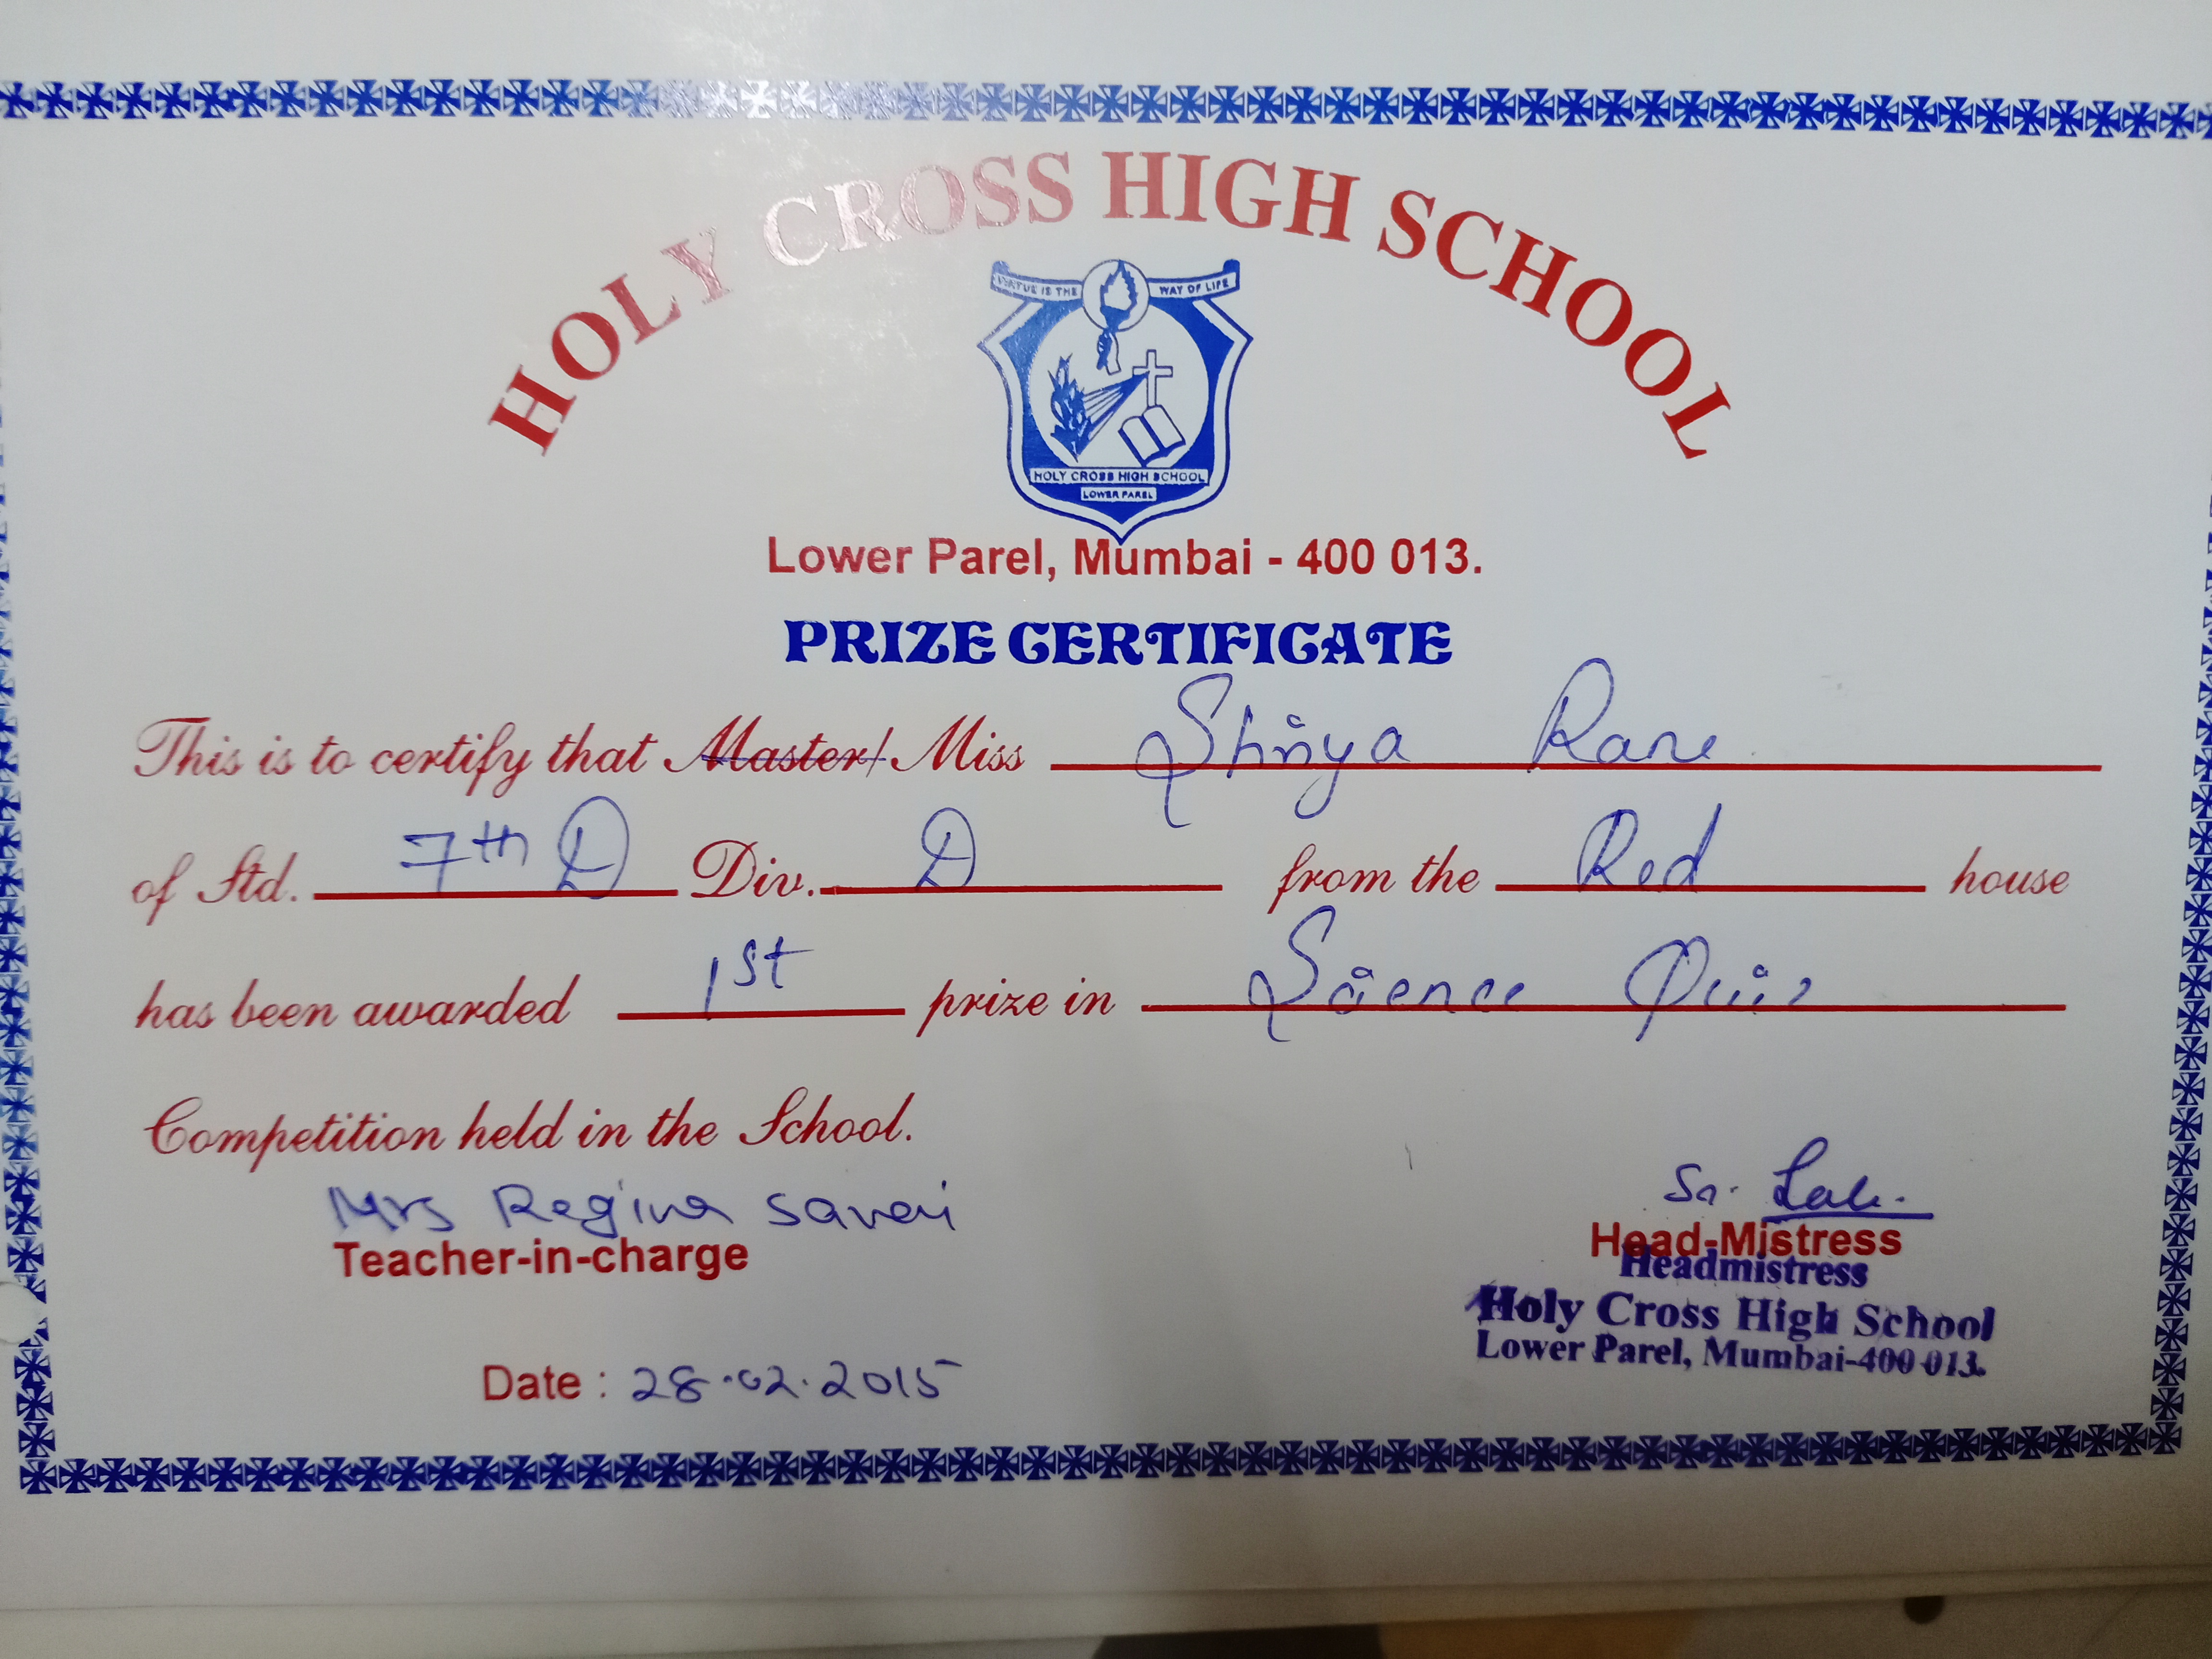 HOLY CROSS HIGH SCHOOL
VIRTUE IS THE WAY OF LIFE
HOLY CROSS HIGH SCHOOL
LOWER PAREL
Lower Parel, Mumbai - 400 013.
PRIZE CERTIFICATE
This is to certify that Master/ Miss Rane
of Std. 7th D Div. D from the Red house
has been awarded 1st prize in Science Quiz
Competition held in the School.
Mrs Regina
Teacher-in-charge
Sr.
Head-Mistress
Headmistress
Holy Cross High School
Lower Parel, Mumbai-400 013.
Date : 28.02.2015